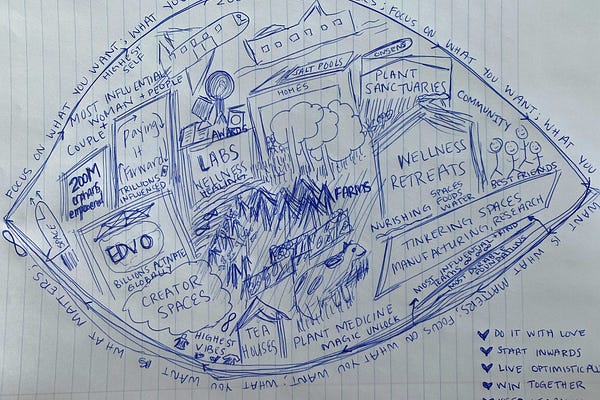 FOCUS ON WHAT YOU WANT; WHAT YOU
; FOCUS ON WHAT YOU WANT; WHAT YOU
WANT IS WHAT MATTERS; FOCUS ON WHAT YOU WANT; WHAT YOU WANT IS
WHAT MATTERS
HIGHEST
SELF
MOST INFLUENTIAL
WOMAN + PEOPLE
COUPLE +
Paying
it
forward
TRILLIONS
INFLUENCED
200M
empowered
SPACE
EDVO
BILLIONS
GLOBALLY
CREATOR
SPACES
HIGHEST
VIBES
AWARDS
LABS
WELLNESS
HEALING
SALT POOLS
HOMES
ONSENS
PLANT
SANCTUARIES
COMMUNITY
BEST FRIENDS
WELLNESS
RETREATS
NURISHING
SPACES
FOOD
WATER
FARMS
TINKERING SPACES
MANUFACTURING, RESEARCH
MOST INFLUENTIAL
FOUNDATION
TEA
HOUSES
PLANT MEDICINE
MAGIC UNLOCK
DO IT WITH LOVE
START INWARDS
LIVE OPTIMISTICALL
WIN TOGETHER